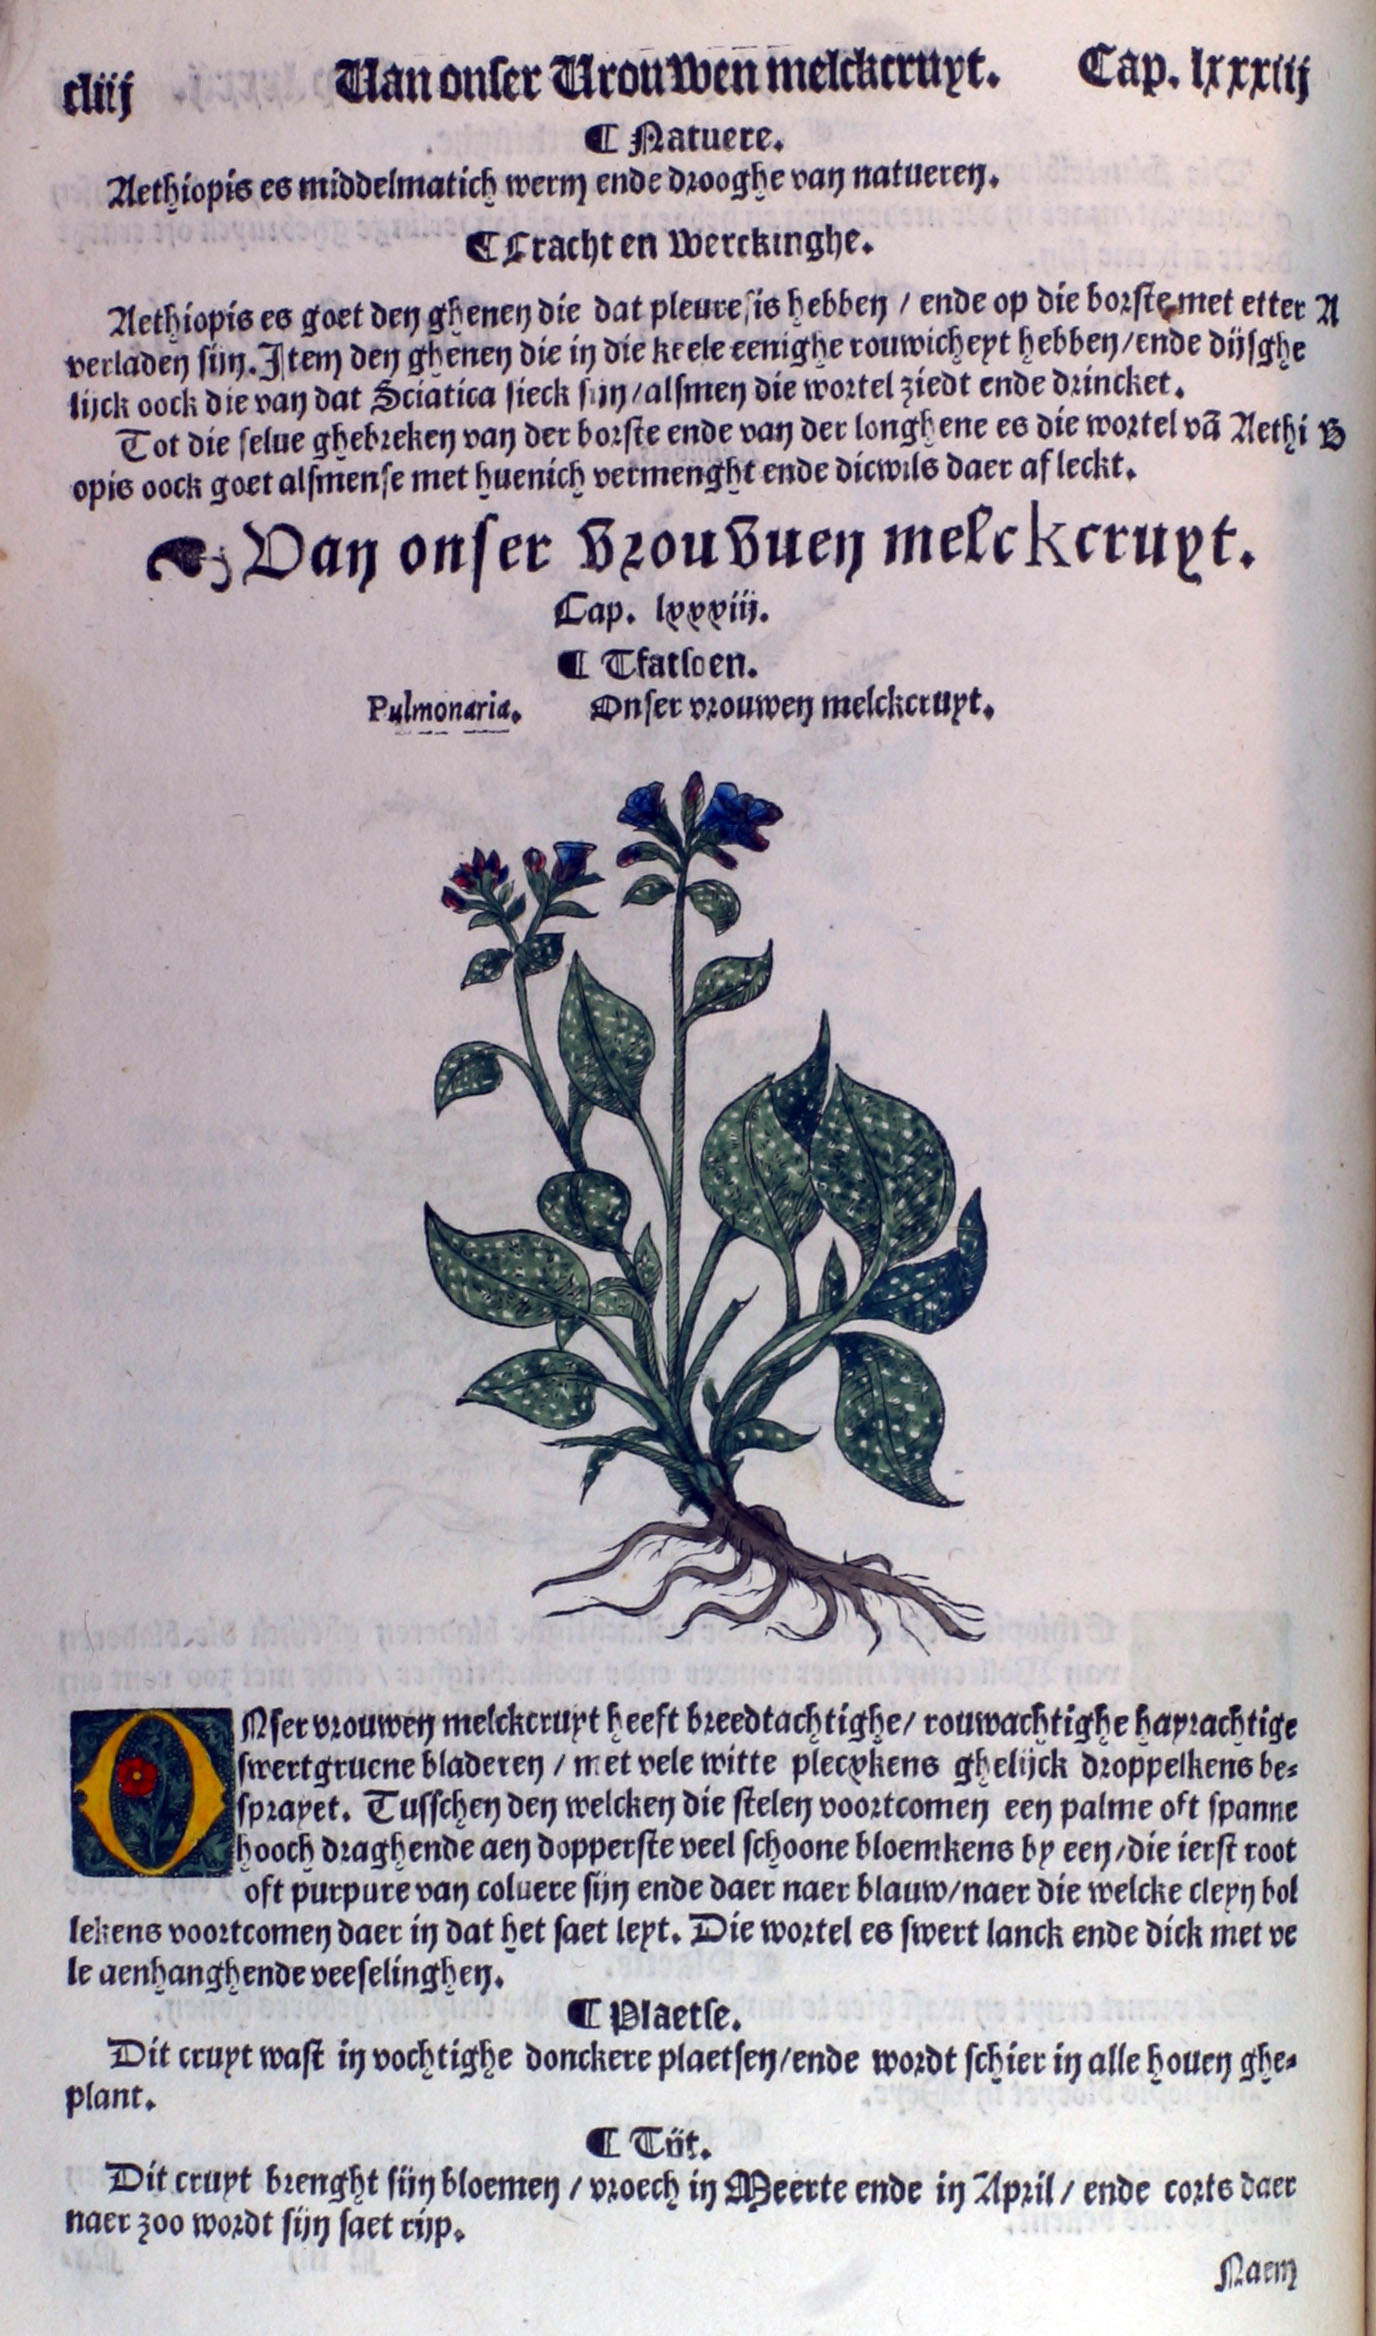 cliij Van onser Vrouwen melckcruyt. Cap. lxxxiij
¶ Natuere.
Aethiopis es middelmatich werm ende drooghe van natueren.
¶ Cracht en Werckinghe.
Aethiopis es goet den ghenen die dat pleuresis hebben / ende op die borste met etter A
verladen sijn. Item den ghenen die in die keele eenighe rouwicheyt hebben / ende dijsghe
lijck oock die van dat Sciatica sieck sijn / alsmen die wortel ziedt ende drincket.
Tot die selue ghebreken van der borste ende van der longhene es die wortel vã Aethi B
opis oock goet alsmense met huenich vermenght ende dicwils daer af leckt.
Van onser Vrouwen melckcruyt.
Cap. lxxxiij.
¶ Tfatsoen.
Pulmonaria. Onser vrouwen melckcruyt.
ONser vrouwen melckcruyt heeft breedtachtighe / rouwachtighe hayrachtige
swertgruene bladeren / met vele witte plecykens ghelijck droppelkens be-
sprayet. Tusschen den welcken die stelen voortcomen een palme oft spanne
hooch draghende aen dopperste veel schoone bloemkens by een / die ierst root
oft purpure van coluere sijn ende daer naer blauw / naer die welcke cleyn bol
lekens voortcomen daer in dat het saet leyt. Die wortel es swert lanck ende dick met ve
le aenhanghende veeselinghen.
¶ Plaetse.
Dit cruyt wast in vochtighe donckere plaetsen / ende wordt schier in alle houen ghe-
plant.
¶ Tijt.
Dit cruyt brenght sijn bloemen / vroech in Meerte ende in April / ende corts daer
naer zoo wordt sijn saet rijp.
Naem